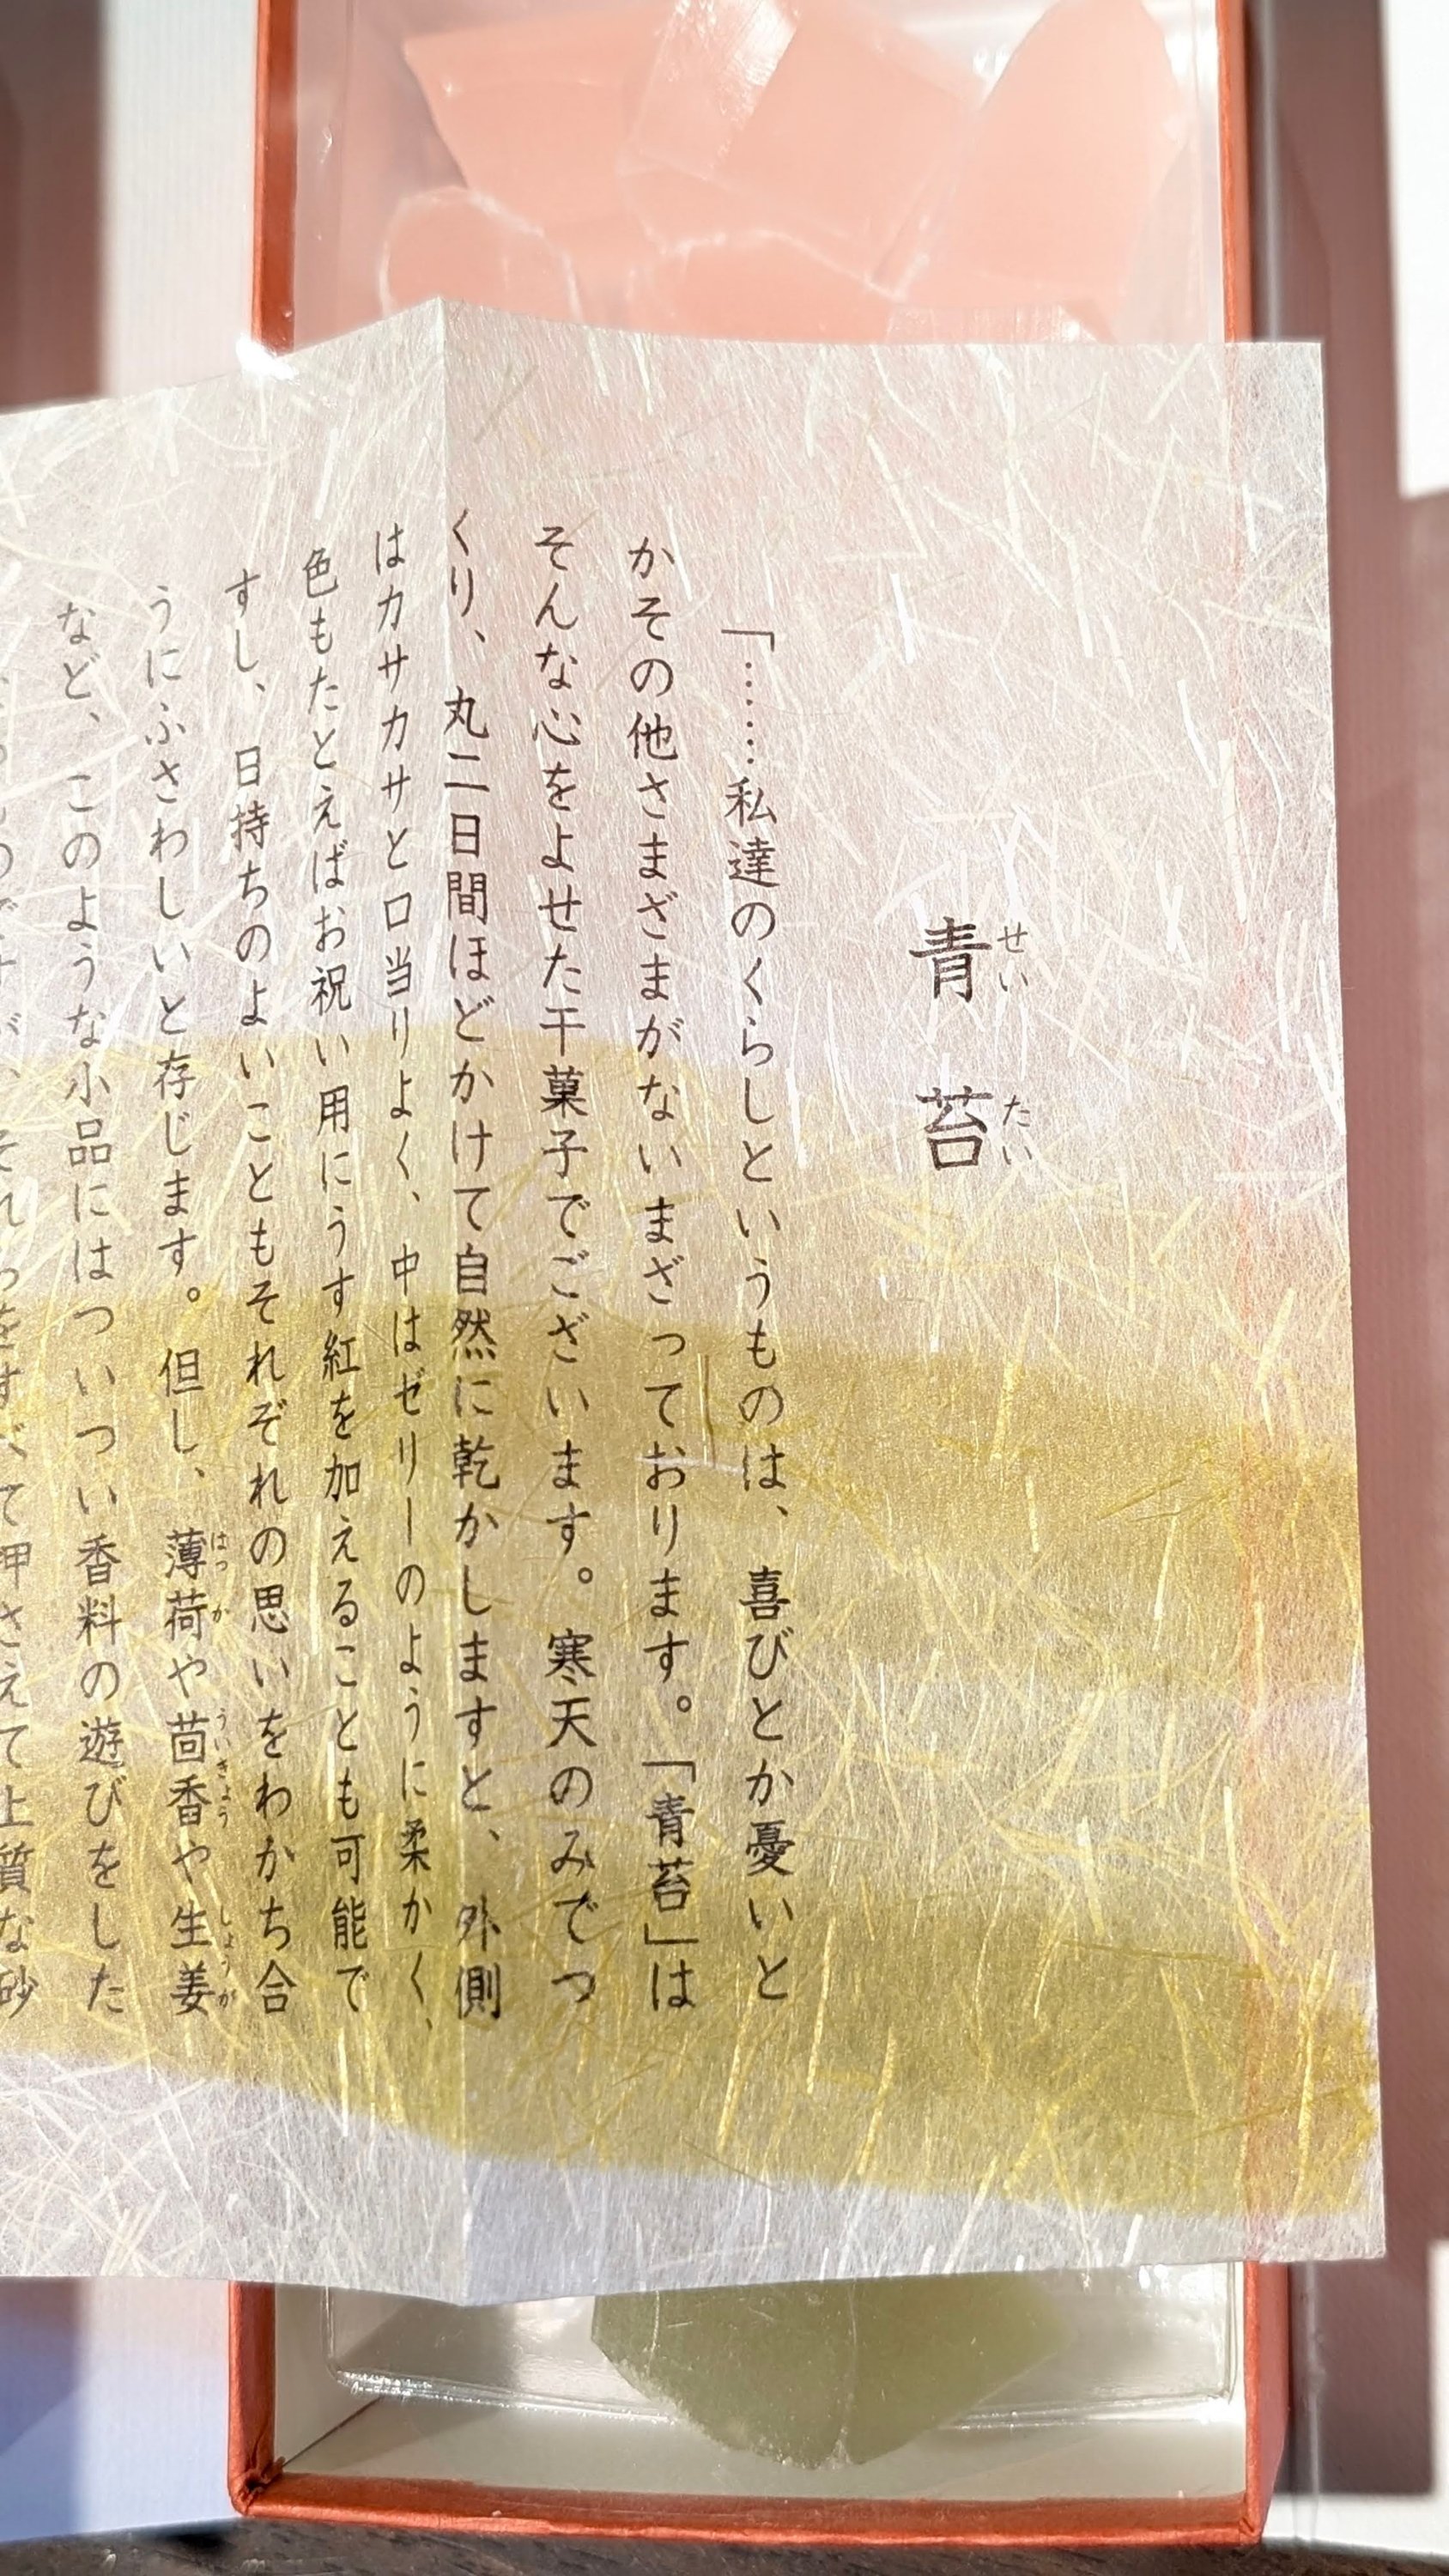 青苔
せいたい
「……私達のくらしというものは、喜びとか憂いと
かその他さまざまがないまざっております。「青苔」は
そんな心をよせた干菓子でございます。寒天のみでつ
くり、丸二日間ほどかけて自然に乾かしますと、外側
はカサカサと口当りよく、中はゼリーのように柔かく、
色もたとえばお祝い用にうす紅を加えることも可能で
すし、日持ちのよいこともそれぞれの思いをわかち合
うにふさわしいと存じます。但し、薄荷や茴香や生姜
はっか
ういきょう
しょうが
など、このような小品にはついつい香料の遊びをした